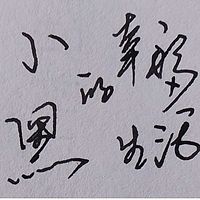 小黑的幸福生活